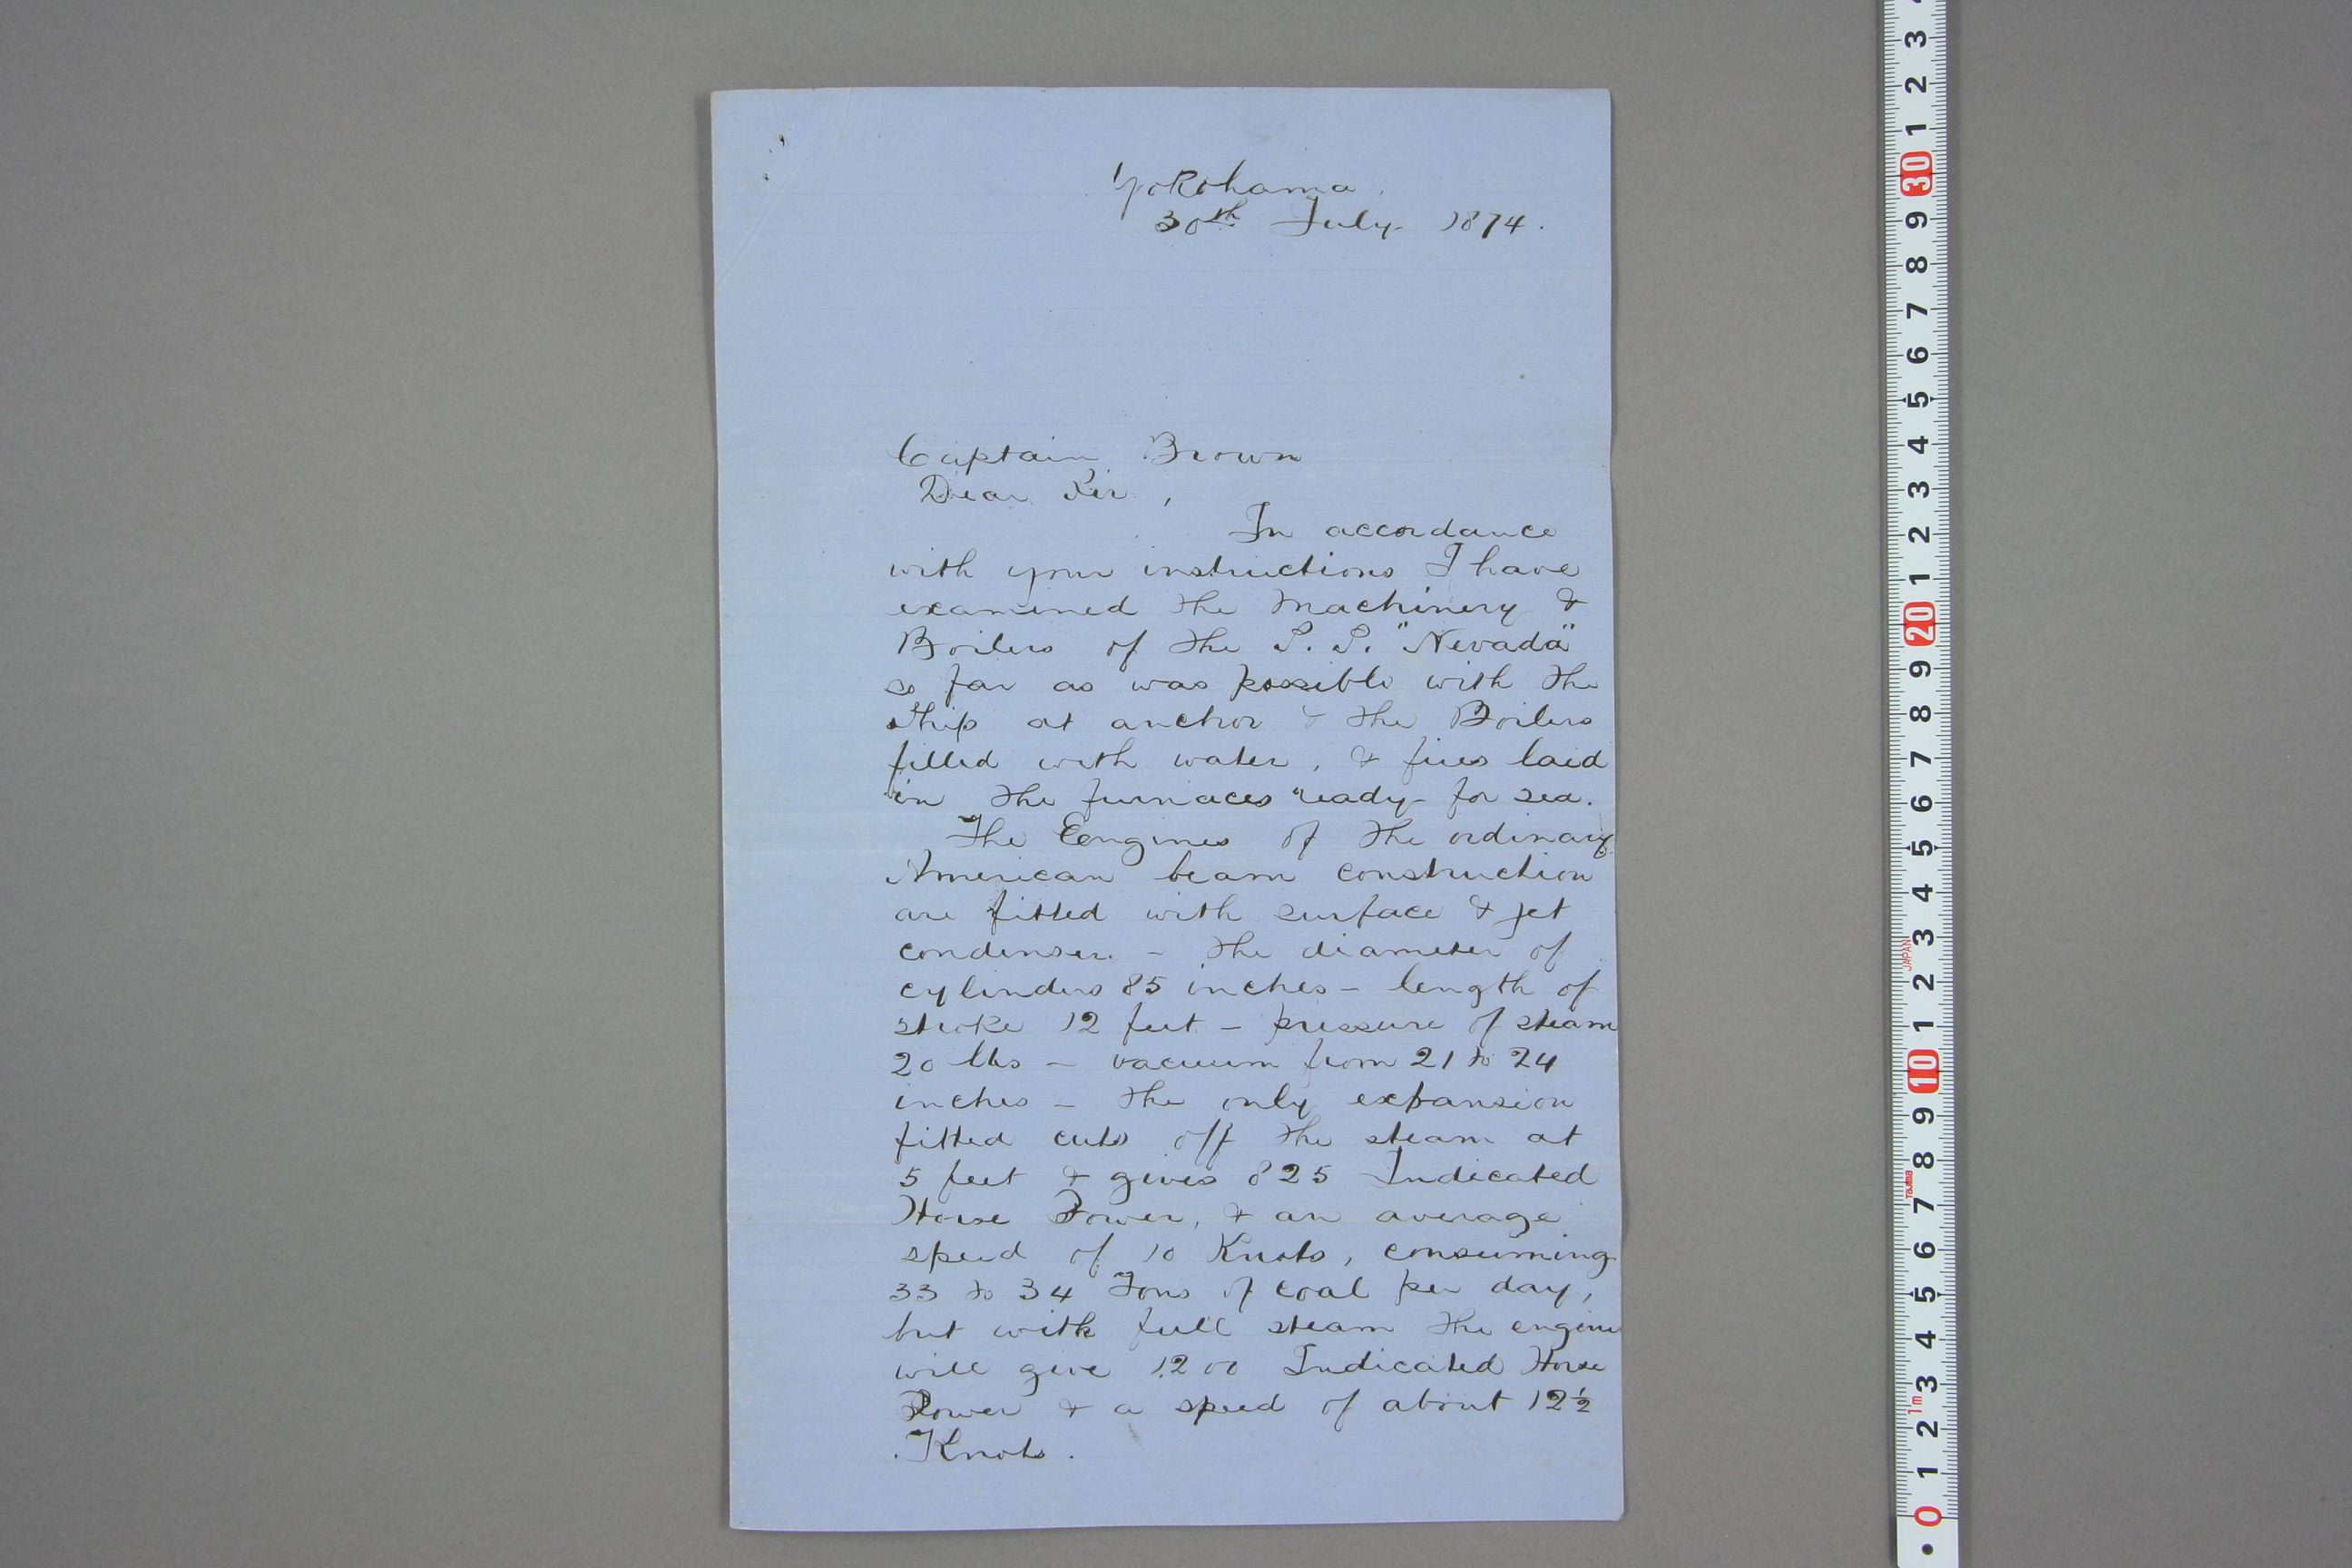 Yokohama.
30th July 1874.
Captain Brown
Dear Sir,
In accordance
with your instructions I have
examined the Machinery &
Boilers of the S. S. "Nevada"
so far as was possible with the
Ship at anchor & the Boilers
filled with water, & fires laid
in the furnaces "ready for sea.
The Engines of the ordinary
American beam construction
are fitted with surface & jet
condenser. - The diameter of
cylinders 85 inches - length of
stroke 12 feet - pressure of steam
20 lbs - vacuum from 21 to 24
inches - The only expansion
fitted cuts off the steam at
5 feet & gives 825 Indicated
Horse Power, & an average
speed of 10 Knots, consuming
33 to 34 Tons of coal per day,
but with full steam the engines
will give 1200 Indicated Horse
Power & a speed of about 12½
Knots.
3 2 1 30 9 8 7 6 5 4 3 2 1 20 9 8 7 6 5 4 3 2 1 10 9 8 7 6 5 4 3 2 1 0
JAPAN
Tajima
1m